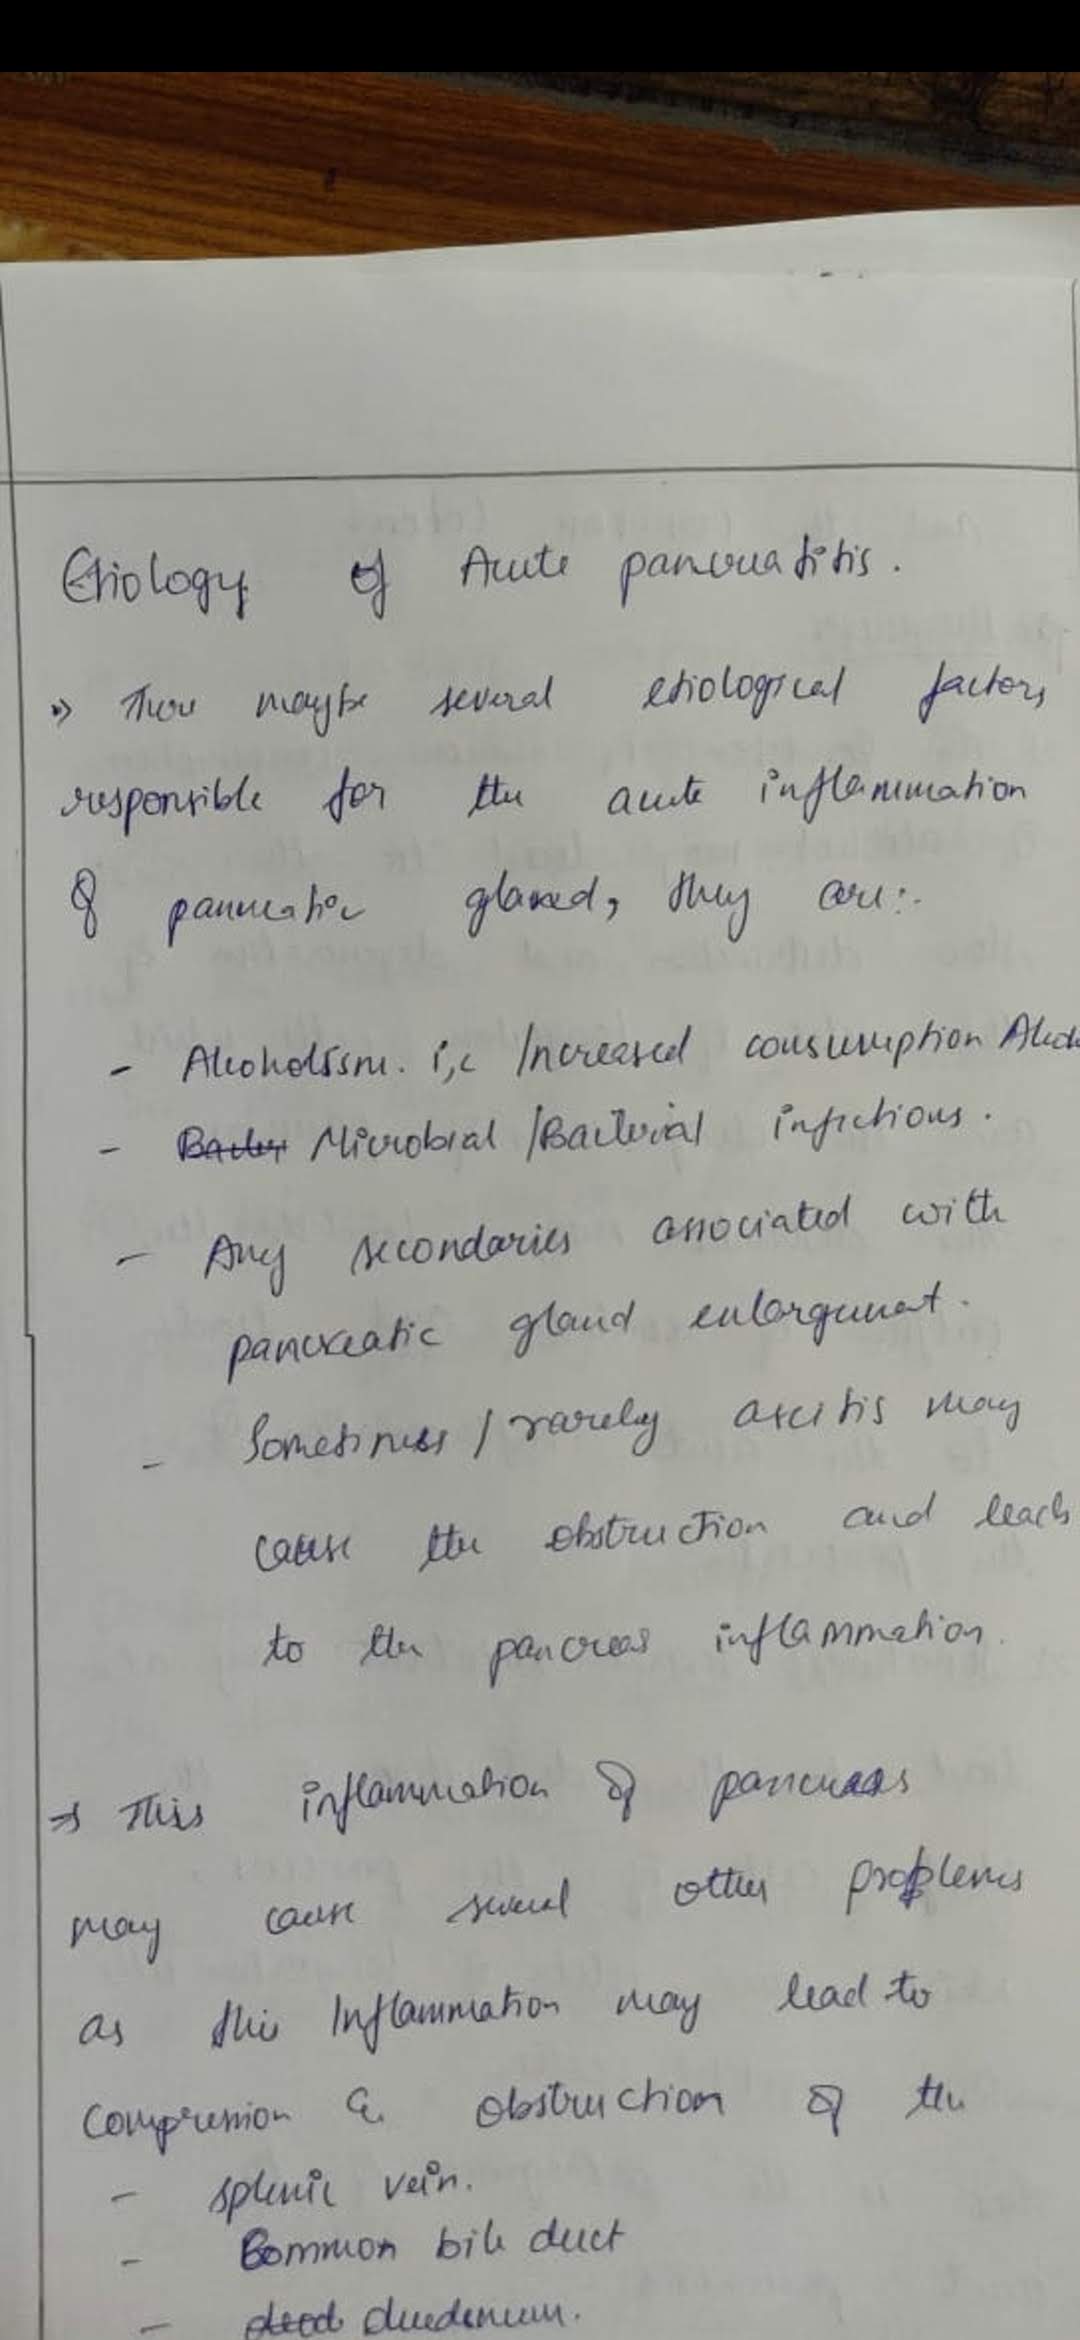 Etiology of Acute pancreatitis.
There maybe several etiological factors
responsible for the acute inflammation
of pancreatic gland, they are:-
- Alcoholism. i,e Increased consumption Alcoh
- Microbial /Bacterial infections.
- Any secondaries associated with
pancreatic gland enlargement.
- Sometimes / rarely ascitis may
cause the obstruction and leads
to the pancreas inflammation.
→ This inflammation of pancreas
may cause several other problems
as this Inflammation may lead to
compression & obstruction of the
- splenic vein.
- Common bile duct
- duedenum.